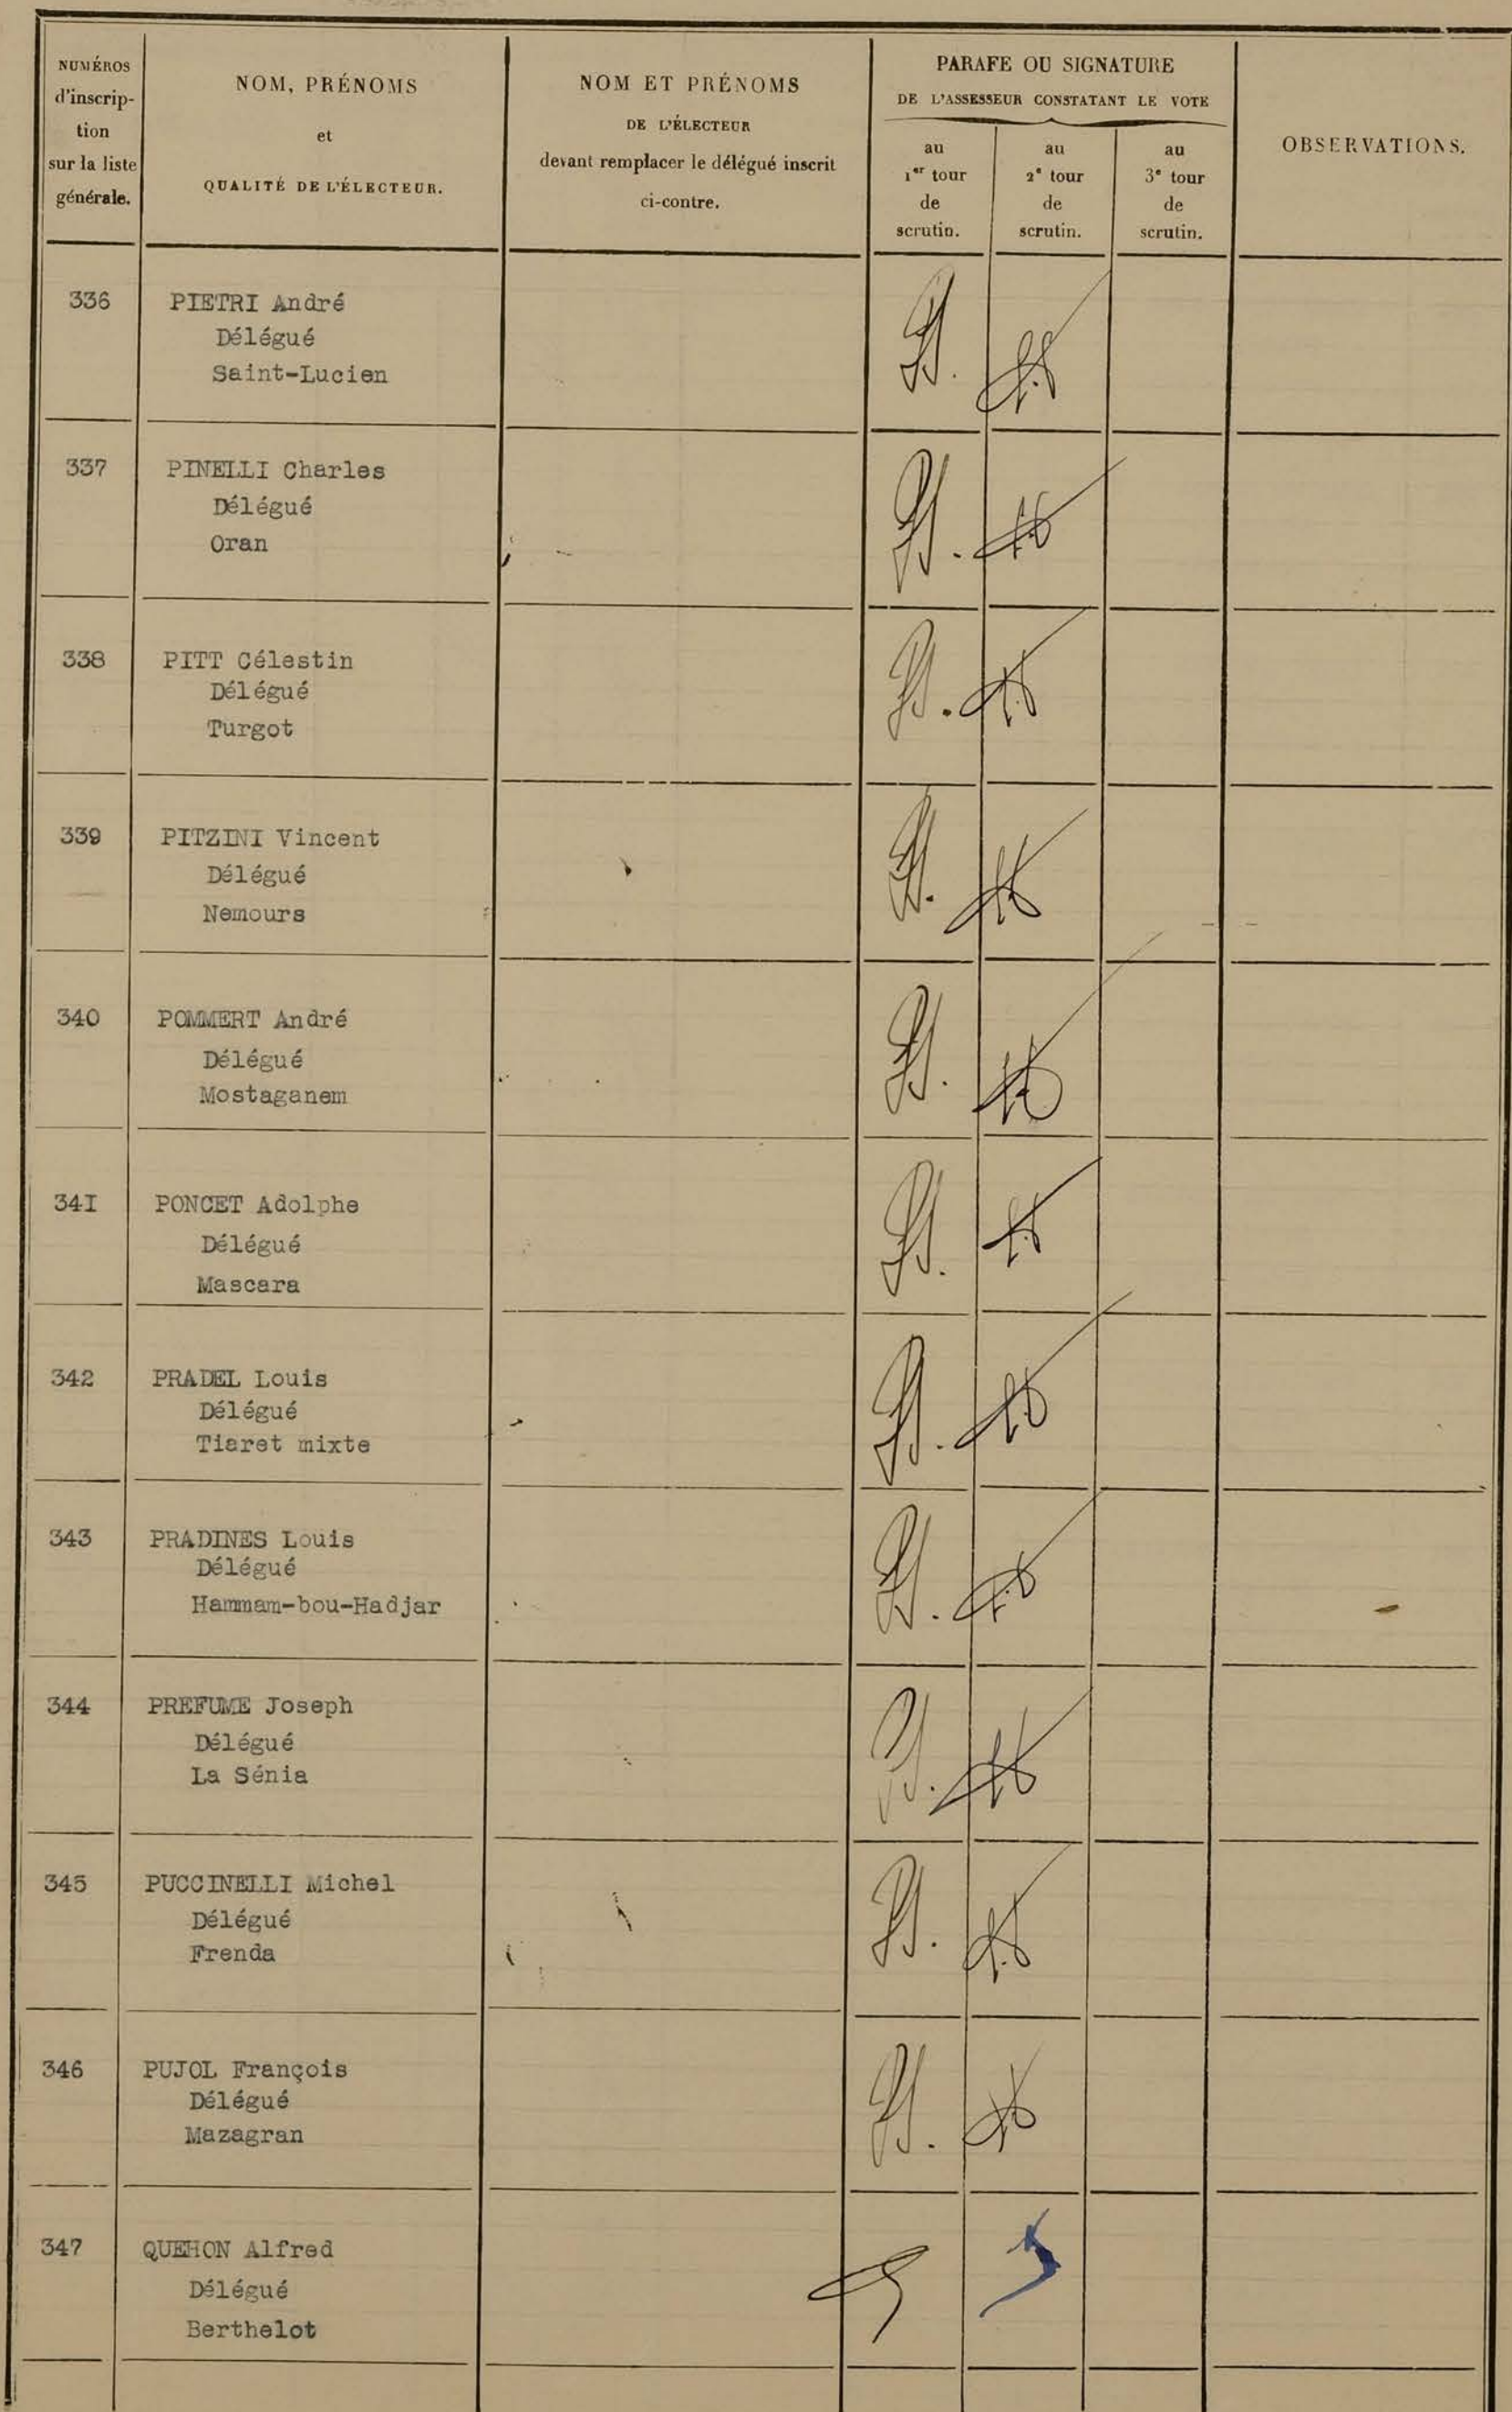 NUMÉROS
d'inscrip-
tion
sur la liste
générale.
NOM, PRÉNOMS
et
QUALITÉ DE L'ÉLECTEUR.
NOM ET PRÉNOMS
DE L'ÉLECTEUR
devant remplacer le délégué inscrit
ci-contre.
PARAFE OU SIGNATURE
DE L'ASSESSEUR CONSTATANT LE VOTE
au
1er tour
de
scrutin.
au
2e tour
de
scrutin.
au
3e tour
de
scrutin.
OBSERVATIONS.
336 PIETRI André
Délégué
Saint-Lucien
337 PINELLI Charles
Délégué
Oran
338 PITT Célestin
Délégué
Turgot
339 PITZINI Vincent
Délégué
Nemours
340 POMMERT André
Délégué
Mostaganem
34I PONCET Adolphe
Délégué
Mascara
342 PRADEL Louis
Délégué
Tiaret mixte
343 PRADINES Louis
Délégué
Hammam-bou-Hadjar
344 PREFUME Joseph
Délégué
La Sénia
345 PUCCINELLI Michel
Délégué
Frenda
346 PUJOL François
Délégué
Mazagran
347 QUEHON Alfred
Délégué
Berthelot